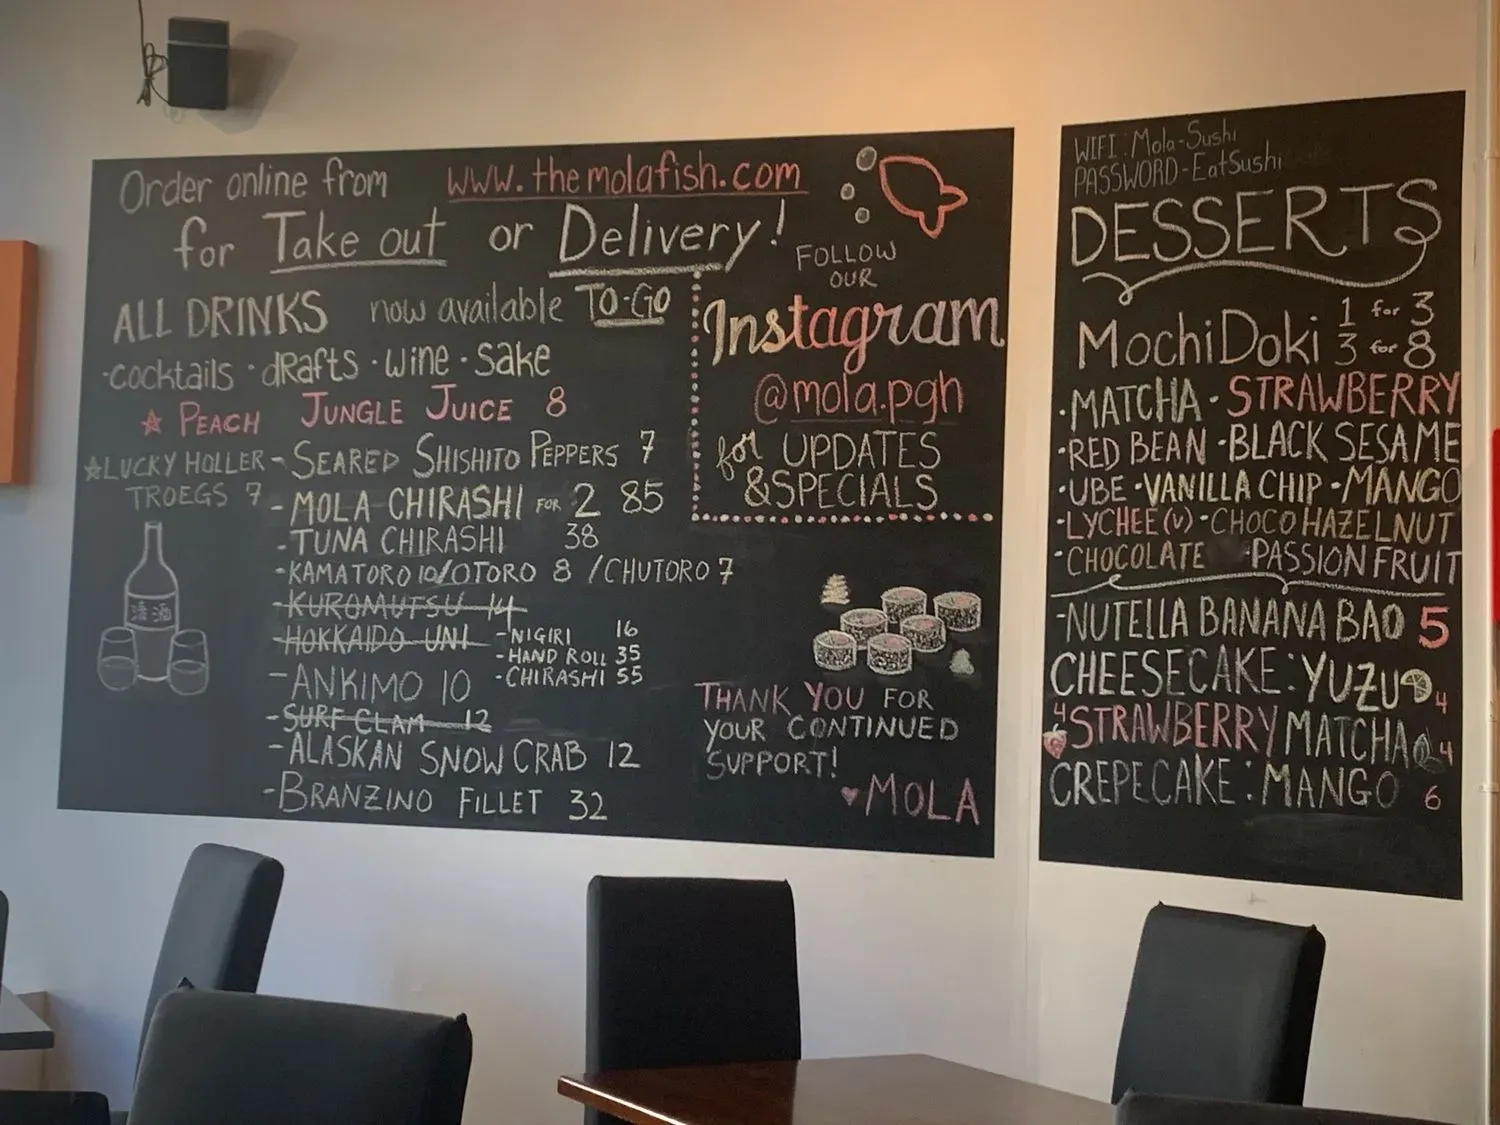 Order online from www.themolafish.com
for Take out or Delivery!
ALL DRINKS now available TO-GO
·cocktails · dRafts · wine · sake
☆ PEACH JUNGLE JUICE 8
☆LUCKY HOLLER
TROEGS 7
- SEARED SHISHITO PEPPERS 7
- MOLA CHIRASHI FOR 2 85
- TUNA CHIRASHI 38
- KAMATORO 10/OTORO 8 /CHUTORO 7
- KUROMUTSU 14
- HOKKAIDO UNI - NIGIRI 16
- HAND ROLL 35
- CHIRASHI 55
- ANKIMO 10
- SURF CLAM 12
- ALASKAN SNOW CRAB 12
- BRANZINO FILLET 32
清酒
FOLLOW
OUR
Instagram
@mola.pgh
for UPDATES
&SPECIALS
THANK YOU FOR
YOUR CONTINUED
SUPPORT!
♥MOLA
WIFI: Mola-Sushi
PASSWORD-EatSushi
DESSERTS
MochiDoki 1 for 3
3 for 8
·MATCHA ·STRAWBERRY
·RED BEAN ·BLACK SESAME
·UBE ·VANILLA CHIP ·MANGO
·LYCHEE(v) ·CHOCO HAZELNUT
·CHOCOLATE PASSION FRUIT
-NUTELLA BANANA BAO 5
CHEESECAKE: YUZU 4
4 STRAWBERRY MATCHA 4
CREPECAKE: MANGO 6